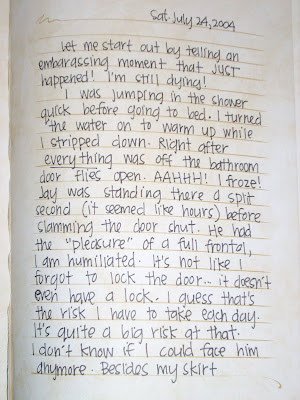 Sat. July 24, 2004
Let me start out by telling an
embarassing moment that JUST
happened! I'm still dying!
I was jumping in the shower
quick before going to bed. I turned
the water on to warm up while
I stripped down. Right after
everything was off the bathroom
door flies open. AAHHH! I froze!
Jay was standing there a split
second (it seemed like hours) before
slamming the door shut. He had
the "pleasure" of a full frontal,
I am humiliated. It's not like I
forgot to lock the door... it doesn't
even have a lock. I guess that's
the risk I have to take each day.
It's quite a big risk at that.
I don't know if I could face him
anymore. Besides my skirt